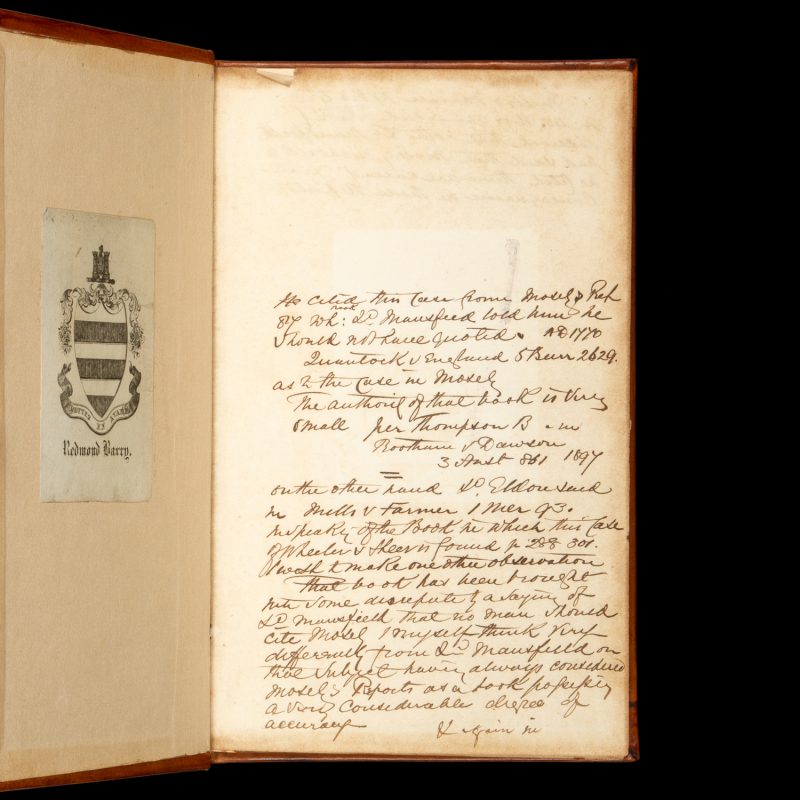 BOUTEZ EN AVANT
Redmond Barry.
He cited this Case from Mosely's Rep
87 Wh: read Ld. Mansfield told him he
should not have quoted. AD 1770
Quantock v England 5 Burr 2629.
as to the Case in Mosely
The authority of that book is very
small per Thompson B. in
Bootham v Dawson
3 Anst 861 1897
on the other hand Ld. Eldon said
in Mills v Farmer 1 Mer 93.
in speaking of the Book in which this Case
of Wheeler v Sheer is found p 288 301.
I wish to make one other observation
That book has been brought
into some disrepute by a saying of
Ld Mansfield that no man should
cite Mosely I myself think very
differently from Ld Mansfield on
that Subject having always considered
Mosely's Reports as a book possessing
a very Considerable degree of
accuracy
& again in